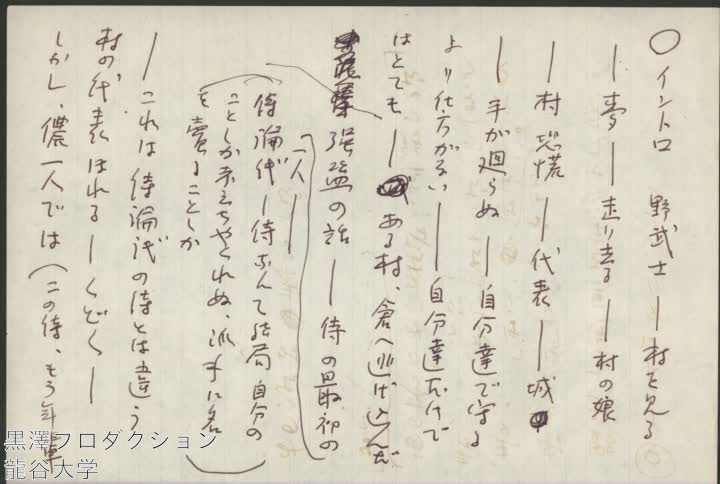 ○イントロ 野武士―村を見る
―夢―走り去る―村の娘
―村 恐慌―代表―城
―手が廻らぬ―自分達で守る
より仕方がない―自分達だけで
はとても―ある村、倉へ逃げ込んだ
強盗の話―侍の最初の
一人―
侍論代―侍なんて結局 自分の
ことしか考えちゃくれぬ、派手に名
を売ることしか
―これは侍論代の侍とは違う
村の代表 ほれる―くどく―
しかし、儂一人では(この侍、もう年
黒澤プロダクション
龍谷大学